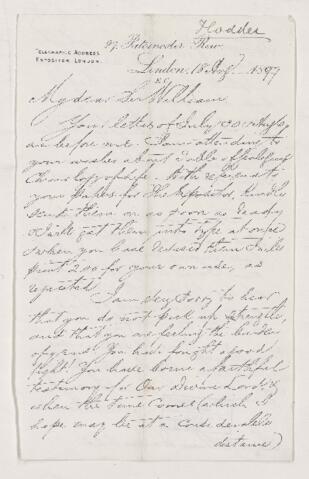 Hodder
27, Paternoster Row,
TELEGRAPHIC ADDRESS
EXPOSITOR LONDON.
London, 18 Aug 1897
E.C.
My dear Sir William
Your letters of July 30 & Aug
are before me. I am attending to
your wishes about Table of Geological
Chronology of Life. As the reference to
your papers for The Expositor, kindly
send them on as soon as ready
& I will get them into type at once
& when you have revised them I will
print 200 for your own use, as
requested.
I am very sorry to hear
that you do not pick up strength,
and that you are feeling the burden
of years. You have fought a good
fight. You have borne a faithful
testimony for Our Divine Lord, &
when the time comes (which I
hope may be at a considerable
distance)